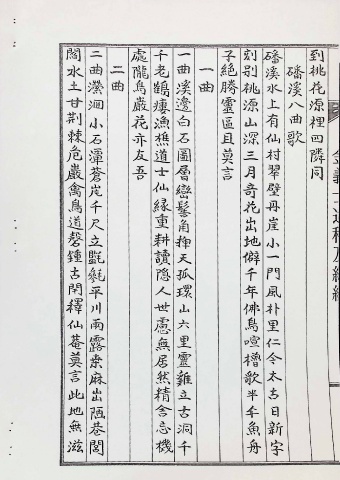 到桃花源裡四隣同
磻溪八曲歌
磻溪水上有仙村翠壁丹崖小一門風朴里仁今太古日新字
刻别桃源山深三月奇花出地僻千年佛鳥喧櫓歌半千魚舟
子絶勝靈區且莫言
一曲
一曲溪邊白石圖層巒鬂角揷天孤環山六里靈雞立古洞千
千老鶴痩漁樵道士仙緣重耕讀隐人世慮無居然精舍忘機
處隴鳥巖花亦友吾
二曲
二曲瀠洄小石潭蒼崖千尺立㲯毿平川雨露桒麻出陋巷閭
閻水土甘荆棘危巖禽鳥道磬鍾古閉釋仙菴莫言此地無滋